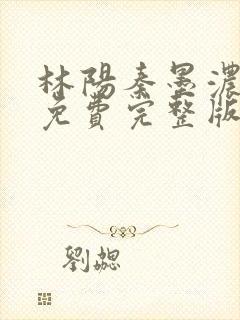 林陽秦墨濃
免費完整版
劉勰